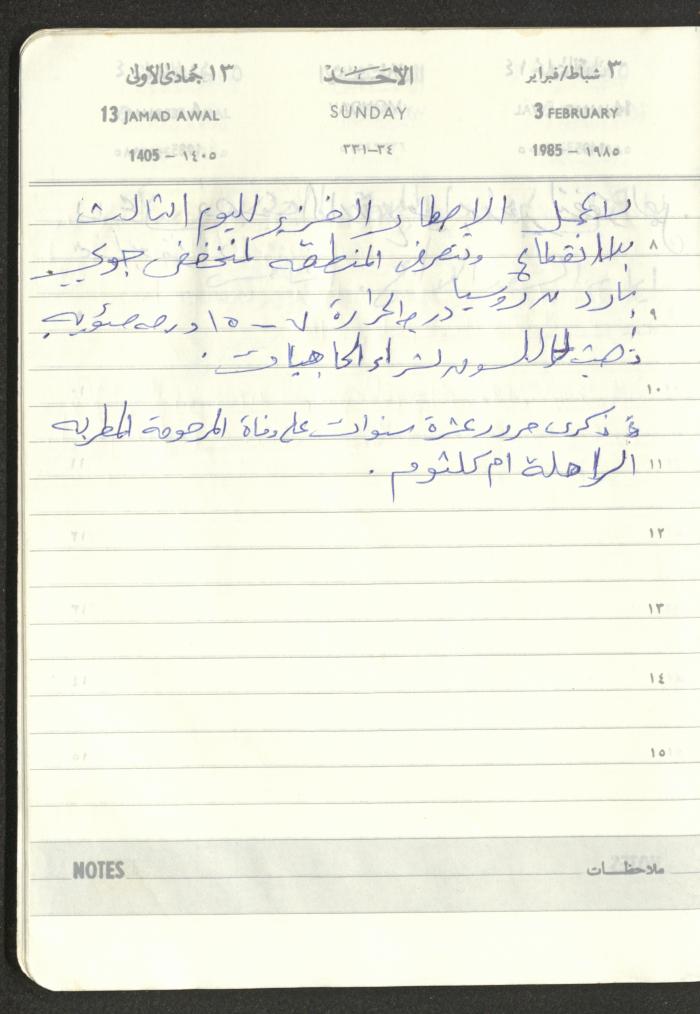 ٣ شباط/فبراير الأحَد ١٣ جُمادى الأولى
3 FEBRUARY SUNDAY 13 JAMAD AWAL
1985 – ١٩٨٥ ٣٤–٣٣١ 1405 – ١٤٠٥
الامطار الغزيره لليوم الثالث
٨ بلا انقطاع وتتعرض المنطقه لمنخفض جوي
٩ بارد من روسيا درجة الحرارة ٧ – ١٥ درجه مئويه
ذهبت للسوق لشراء الحاجيات .
١٠
ذكرى مرور عشرة سنوات على وفاة المرحومة المطربه
١١ الراحلة ام كلثوم .
١٢
١٣
١٤
١٥
ملاحظات NOTES